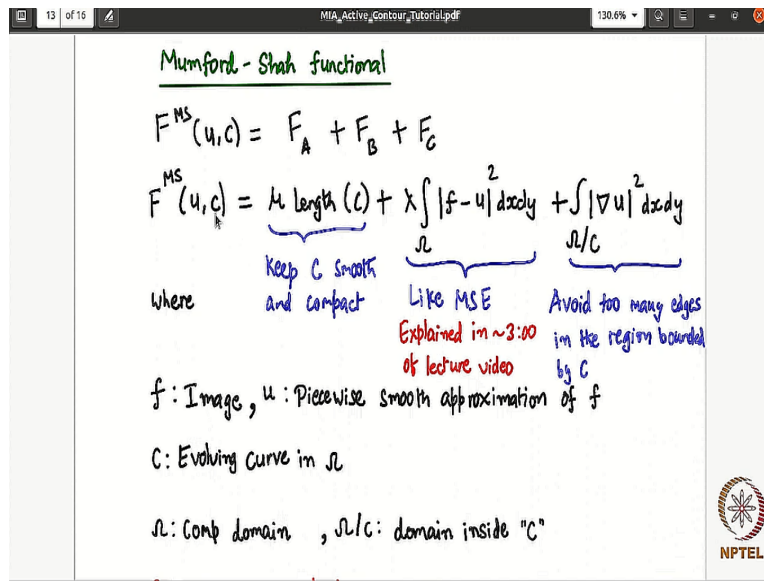 13 of 16
MIA_Active_Contour_Tutorial.pdf
130.6%
Mumford-Shah functional
F^MS (u,c) = F_A + F_B + F_C
F^MS (u,c) = μ Length (C) + λ∫_Ω |f-u|² dxdy + ∫_Ω/C |∇u|² dxdy
Keep C smooth and compact
Like MSE
Explained in ~3:00 of lecture video
Avoid too many edges in the region bounded by C
where
f: Image, u: Piecewise smooth approximation of f
C: Evolving curve in Ω
Ω: Comp domain , Ω/c: domain inside "C"
NPTEL